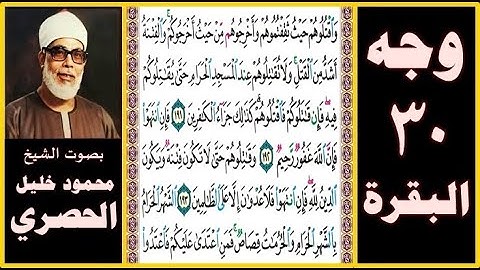 وجه
٣٠
البقرة
وَاقْتُلُوهُمْ حَيْثُ ثَقِفْتُمُوهُمْ وَأَخْرِجُوهُم مِّنْ حَيْثُ أَخْرَجُوكُمْ وَالْفِتْنَةُ
أَشَدُّ مِنَ الْقَتْلِ وَلَا تُقَاتِلُوهُمْ عِندَ الْمَسْجِدِ الْحَرَامِ حَتَّىٰ يُقَاتِلُوكُمْ
فِيهِ فَإِن قَاتَلُوكُمْ فَاقْتُلُوهُمْ كَذَٰلِكَ جَزَاءُ الْكَافِرِينَ ١٩١ فَإِنِ انتَهَوْا
فَإِنَّ اللَّهَ غَفُورٌ رَّحِيمٌ ١٩٢ وَقَاتِلُوهُمْ حَتَّىٰ لَا تَكُونَ فِتْنَةٌ وَيَكُونَ
الدِّينُ لِلَّهِ فَإِنِ انتَهَوْا فَلَا عُدْوَانَ إِلَّا عَلَى الظَّالِمِينَ ١٩٣ الشَّهْرُ الْحَرَامُ
بِالشَّهْرِ الْحَرَامِ وَالْحُرُمَاتُ قِصَاصٌ فَمَنِ اعْتَدَىٰ عَلَيْكُمْ فَاعْتَدُوا
بصوت الشيخ
محمود خليل
الحصري